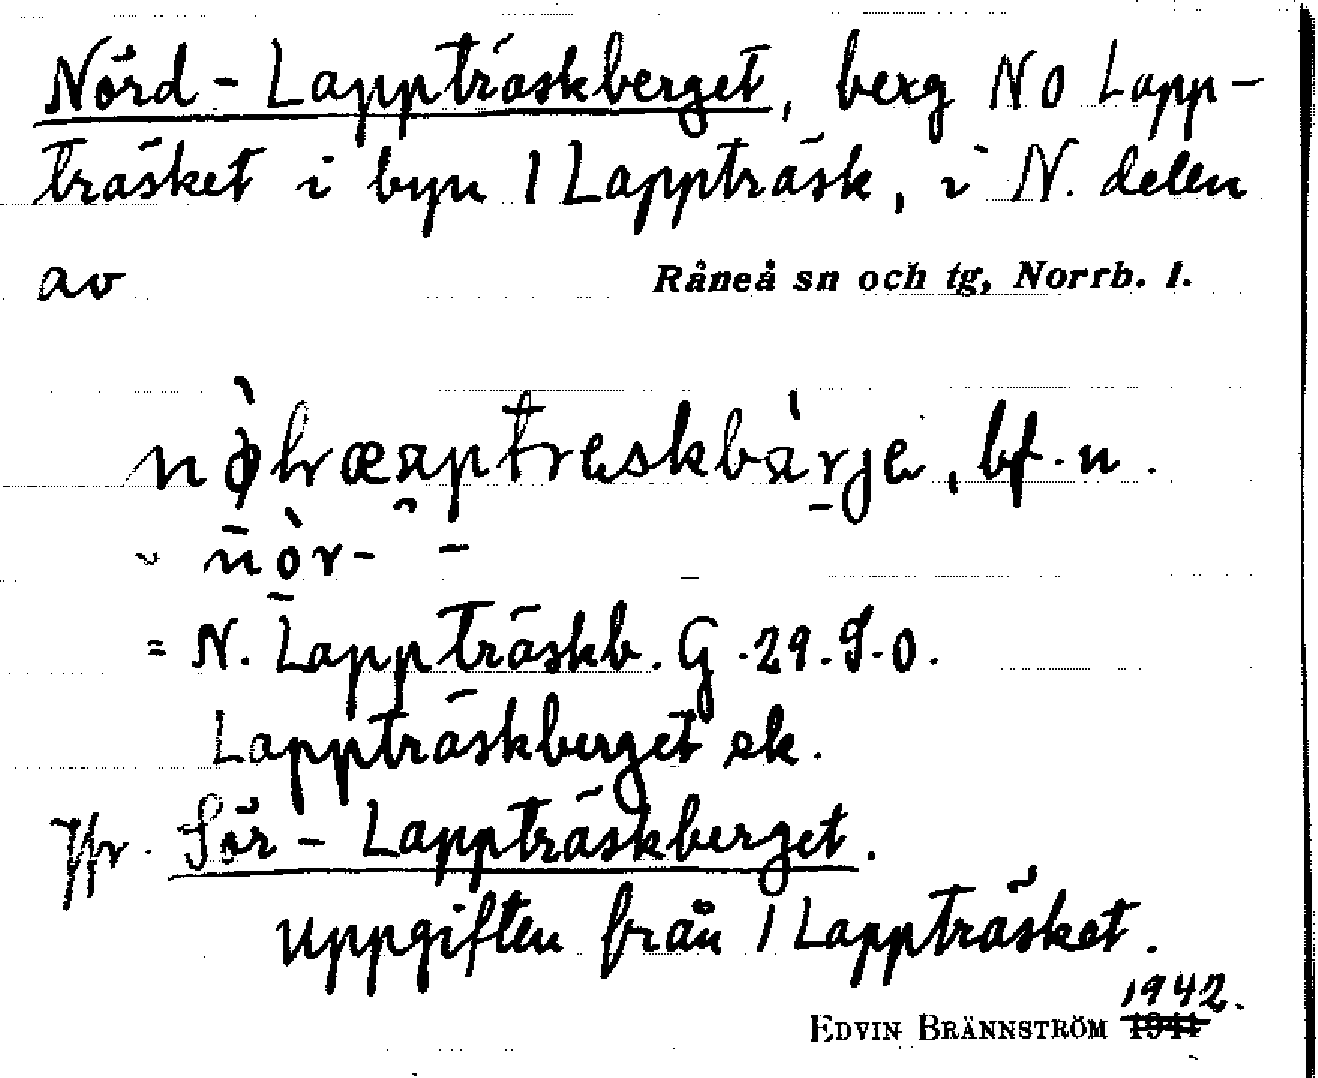 Nörd - Lappträskberget, berg NO Lapp-
träsket i byn 1 Lappträsk, i N. delen
av Råneå sn och tg, Norrb. l.
bf. n.
~ nòr- -
= N. Lappträskb. G. 29. S. O.
Lappträskberget ek.
Jfr. Sör - Lappträskberget.
uppgiften från 1 Lappträsket.
1942.
EDVIN BRÄNNSTRÖM 1941